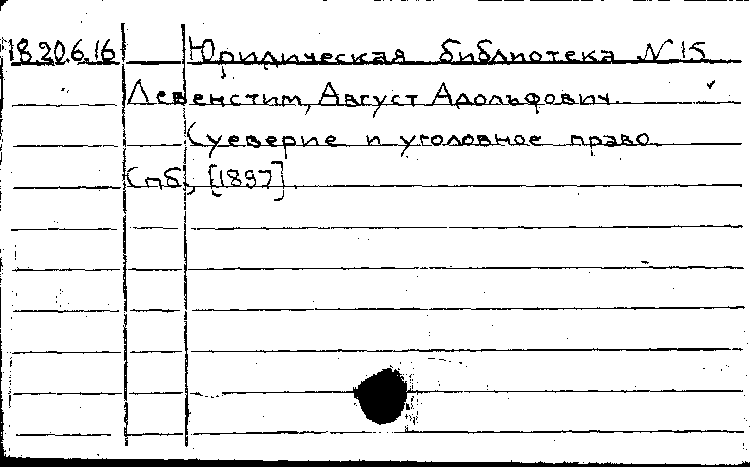 18.20.6.16 Юридическая библиотека № 15
Левенстим, Август Адольфович.
Суеверие и уголовное право.
Спб., [1897].